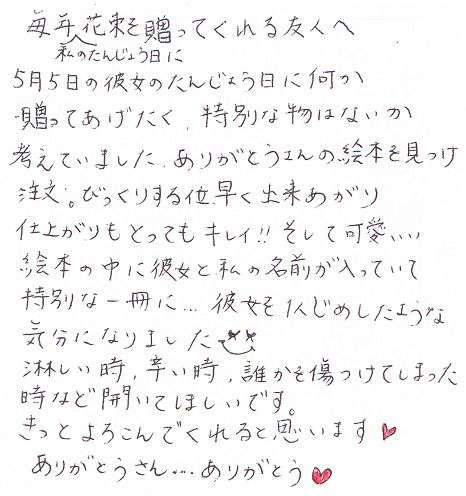 毎年花束を贈ってくれる友人へ
私のたんじょう日に
5月5日の彼女のたんじょう日に何か
贈ってあげたく、特別な物はないか
考えていました。ありがとうさんの絵本を見つけ
注文。びっくりする位早く出来あがり
仕上がりもとってもキレイ!! そして可愛いい
絵本の中に彼女と私の名前が入っていて
特別な一冊に… 彼女を1人じめしたような
気分になりました
淋しい時、辛い時、誰かを傷つけてしまった
時など開いてほしいです。
きっとよろこんでくれると思います
ありがとうさん…ありがとう